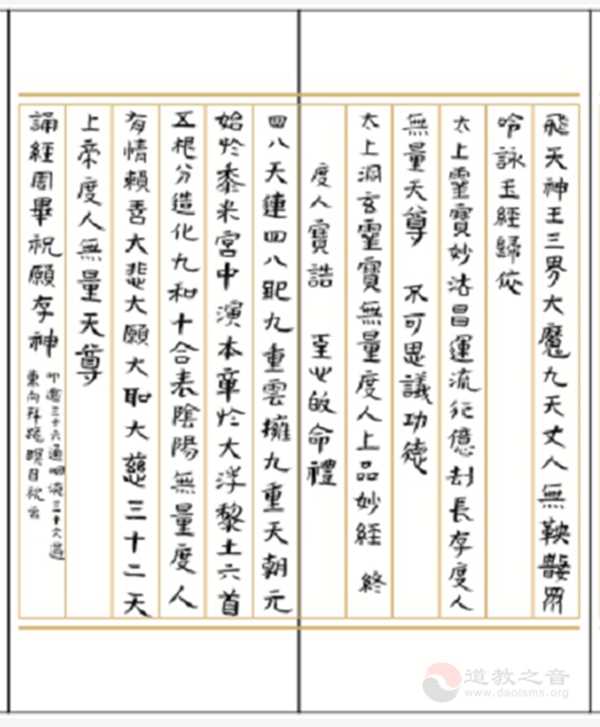 飛天神王三界大魔九天丈人無鞅聲眾
吟詠玉經歸依
太上靈寶妙法昌運流行億刦長存度人
無量天尊 不可思議功德
太上洞玄靈寶無量度人上品妙經 終
度人寶誥 至心皈命禮
四八天連四八距九重雲擁九重天朝元
始於黍米宮中演本章於大浮黎土六首
五根分造化九和十合表陰陽無量度人
有情賴善大悲大願大聖大慈三十二天
上帝度人無量天尊
誦經周畢祝願存神
叩齒三十六通咽液三十六過
東向拜跪瞑目祝云
道教之音
www.daoisms.org